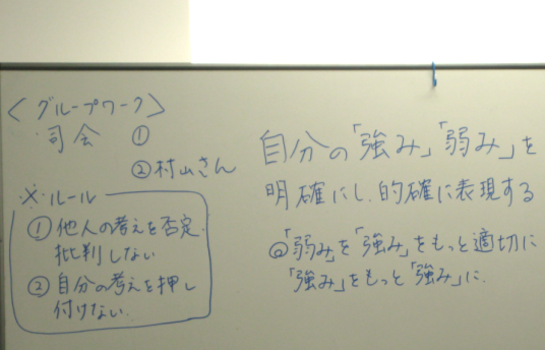 〈グループワーク〉
・司会 ①
②村山さん
※・ルール
①他人の考えを否定・
批判しない
②自分の考えを押し
付けない.
自分の「強み」「弱み」を
明確にし、的確に表現する
◎「弱み」を「強み」をもっと適切に
「強み」をもっと「強み」に.